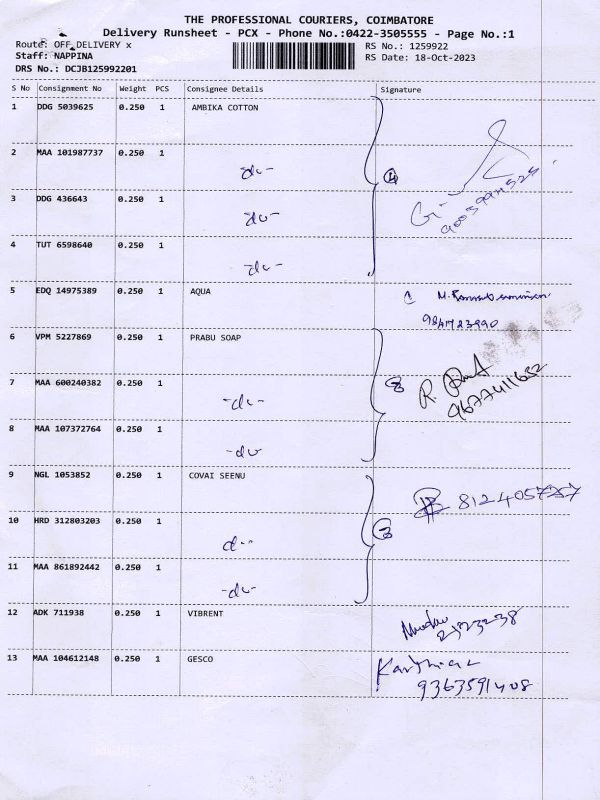 THE PROFESSIONAL COURIERS, COIMBATORE
Delivery Runsheet - PCX - Phone No.:0422-3505555 - Page No.:1
Route: OFF DELIVERY x
Staff: NAPPINA
DRS No.: DCJB125992201
RS No.: 1259922
RS Date: 18-Oct-2023
S No Consignment No Weight PCS Consignee Details Signature
1 DDG 5039625 0.250 1 AMBIKA COTTON
2 MAA 101987737 0.250 1 -do-
④
3 DDG 436643 0.250 1 -do-
4 TUT 6598640 0.250 1 -do-
5 EDQ 14975389 0.250 1 AQUA
6 VPM 5227869 0.250 1 PRABU SOAP
7 MAA 600240382 0.250 1 -do-
③
9677411652
8 MAA 107372764 0.250 1 -do-
9 NGL 1053852 0.250 1 COVAI SEENU
10 HRD 312803203 0.250 1 do-
③
11 MAA 861892442 0.250 1 -do-
12 ADK 711938 0.250 1 VIBRENT
13 MAA 104612148 0.250 1 GESCO
9363591408